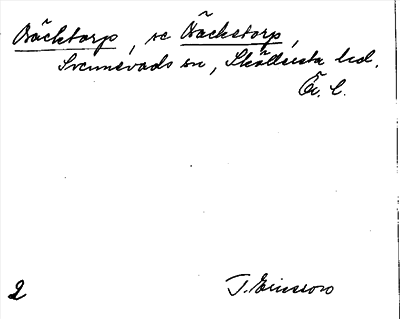 Bäcktorp, se Bäckstorp,
Svennevads sn, Sköllersta hd.
Ör. l.
2 T. Ericsson